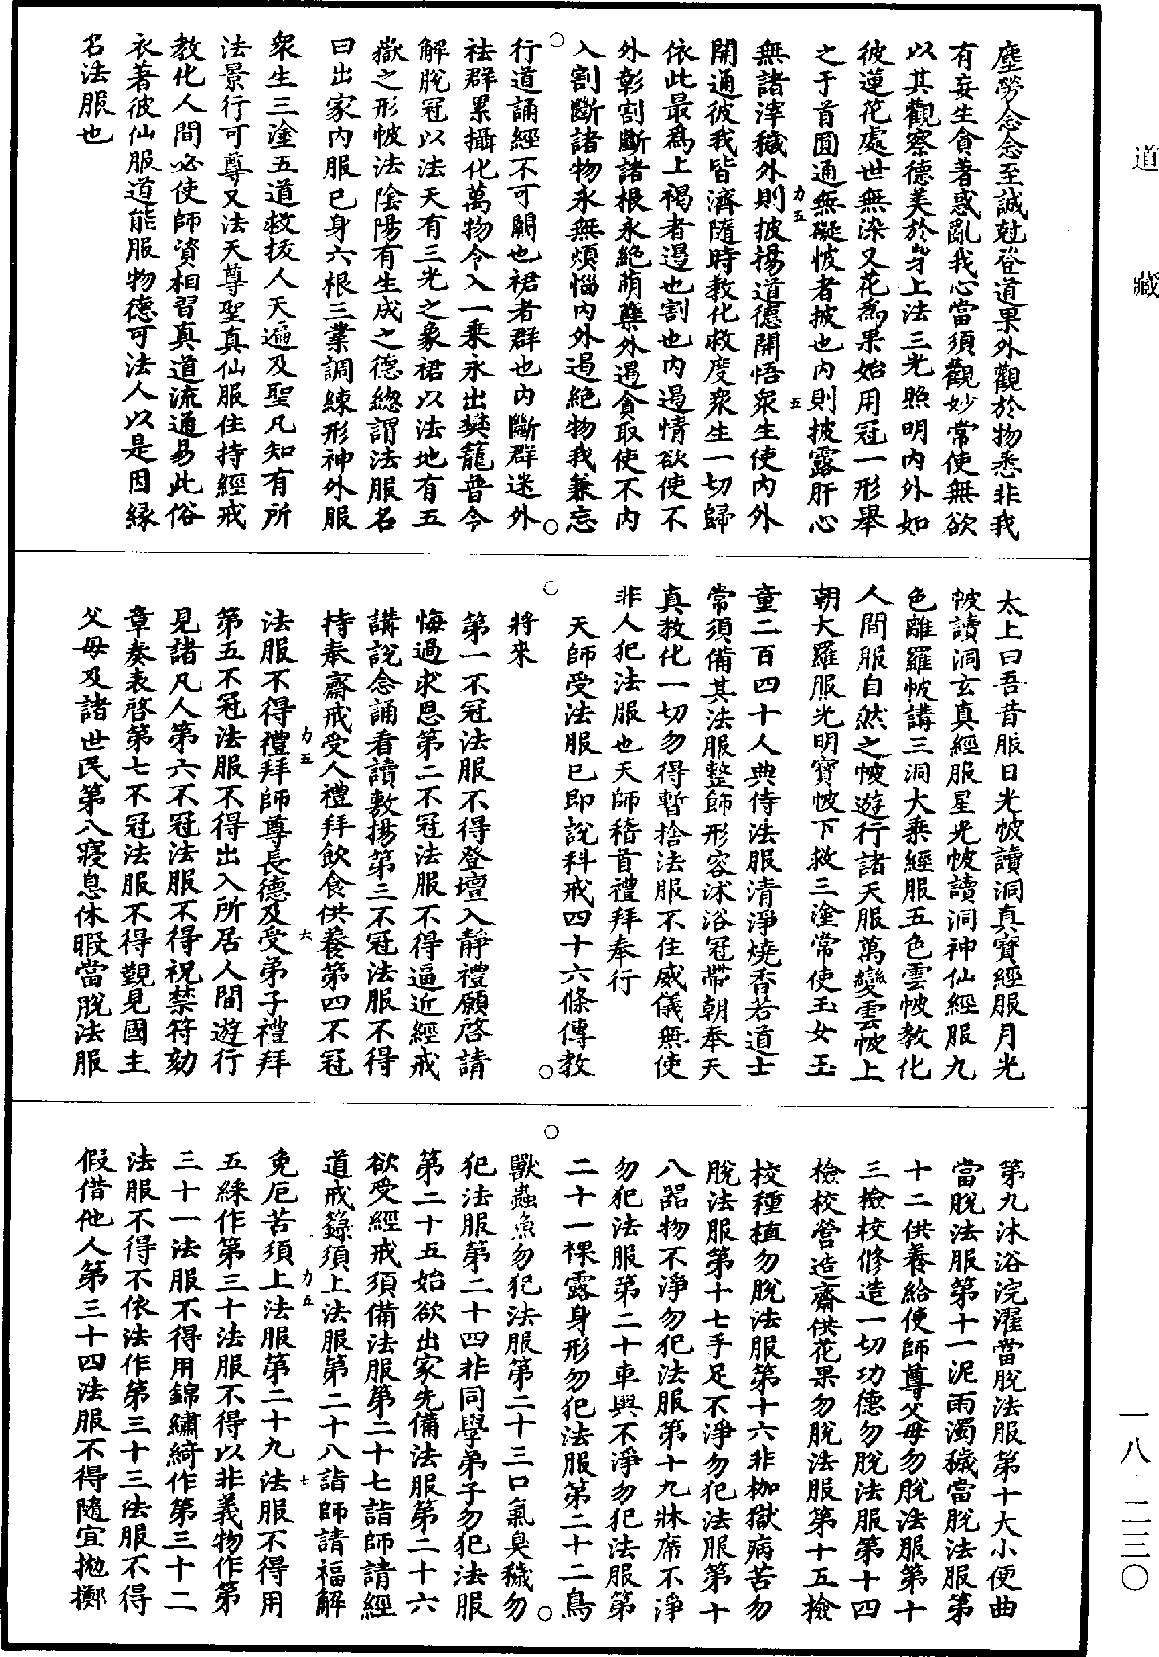 道藏
一八·二三〇
塵勞念念至誠尅登道果外觀於物悉非我
有妄生貪著惑亂我心當須觀妙常使無欲
以其觀察德美於身上法三光照明內外如
彼蓮花處世無染又花為果始用冠一形舉
之于首圓通無礙帔者披也內則披露肝心
無諸滓穢外則披揚道德開悟眾生使內外
力五
五
開通彼我皆濟隨時教化救度眾生一切歸
依此最為上褐者遏也割也內遏情欲使不
外彰割斷諸根永絕萌蘖外遏貪取使不內
入割斷諸物永無煩惱內外遏絕物我兼忘
行道誦經不可闕也裙者群也內斷群迷外
祛群累攝化萬物令入一乘永出樊籠普令
解脫冠以法天有三光之象裙以法地有五
嶽之形帔法陰陽有生成之德總謂法服名
曰出家內服己身六根三業調練形神外服
眾生三塗五道救拔人天遍及聖凡知有所
法景行可尊又法天尊聖真仙服住持經戒
教化人間必使師資相習真道流通易此俗
衣著彼仙服道能服物德可法人以是因緣
名法服也
太上曰吾昔服日光帔讀洞真寶經服月光
帔讀洞玄真經服星光帔讀洞神仙經服九
色離羅帔講三洞大乘經服五色雲帔教化
人間服自然之帔遊行諸天服萬變雲帔上
朝大羅服光明寶帔下救三塗常使玉女玉
童二百四十人典侍法服清淨燒香若道士
常須備其法服整飾形容沐浴冠帶朝奉天
真教化一切勿得暫捨法服不住威儀無使
非人犯法服也天師稽首禮拜奉行
天師受法服已即說科戒四十六條傳教
將來
第一不冠法服不得登壇入靜禮願啓請
悔過求恩第二不冠法服不得逼近經戒
講說念誦看讀敷揚第三不冠法服不得
持奉齋戒受人禮拜飲食供養第四不冠
力五
六
法服不得禮拜師尊長德及受弟子禮拜
第五不冠法服不得出入所居人間遊行
見諸凡人第六不冠法服不得祝禁符劾
章奏表啓第七不冠法服不得覲見國主
父母及諸世民第八寢息休暇當脫法服
第九沐浴浣濯當脫法服第十大小便曲
當脫法服第十一泥雨濁穢當脫法服第
十二供養給使師尊父母勿脫法服第十
三撿校修造一切功德勿脫法服第十四
撿校營造齋供花果勿脫法服第十五撿
校種植勿脫法服第十六非枷獄病苦勿
脫法服第十七手足不淨勿犯法服第十
八器物不淨勿犯法服第十九牀席不淨
勿犯法服第二十車輿不淨勿犯法服第
二十一裸露身形勿犯法服第二十二鳥
獸蟲魚勿犯法服第二十三口氣臭穢勿
犯法服第二十四非同學弟子勿犯法服
第二十五始欲出家先備法服第二十六
欲受經戒須備法服第二十七詣師請經
道戒籙須上法服第二十八詣師請福解
力五
七
免厄苦須上法服第二十九法服不得用
五綵作第三十法服不得以非義物作第
三十一法服不得用錦繡綺作第三十二
法服不得不依法作第三十三法服不得
假借他人第三十四法服不得隨宜拋擲